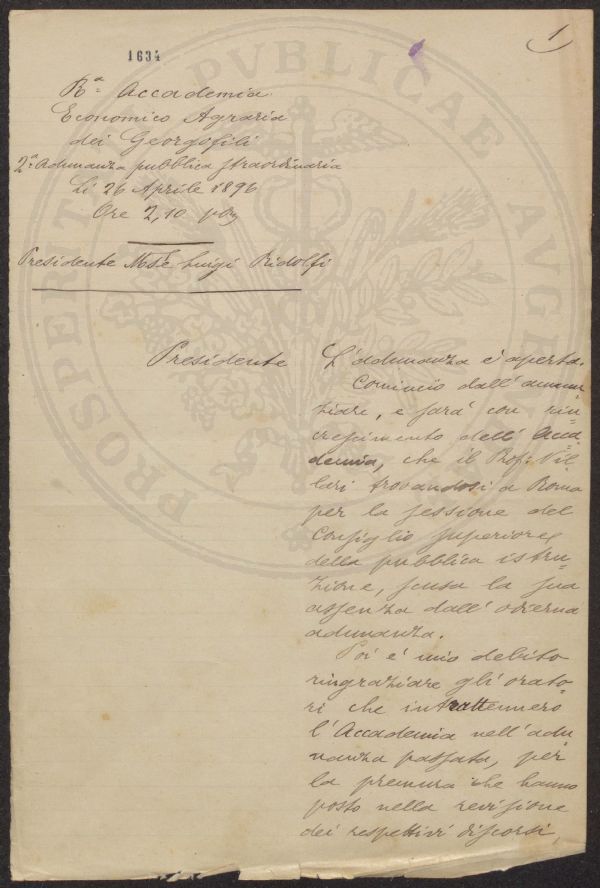 1
1634
Rª Accademia
Economico Agraria
dei Georgofili
2ª adunanza pubblica straordinaria
Li 26 Aprile 1896
Ore 2,10 pom
Presidente Mse Luigi Ridolfi
Presidente
L'adunanza è aperta.
Comincio dall'annun-
ziare, e sarà con rin-
crescimento dell'Acca-
demia, che il Prof: Vil-
lari trovandosi a Roma
per la sessione del
Consiglio superiore
della pubblica istru-
zione, scusa la sua
assenza dall'odierna
adunanza.
Poi è mio debito
ringraziare gli orato-
ri che intrattennero
l'Accademia nell'adu-
nanza passata, per
la premura che hanno
posto nella revisione
dei respettivi discorsi,
PROSPERITATI PVBLICAE AVGE